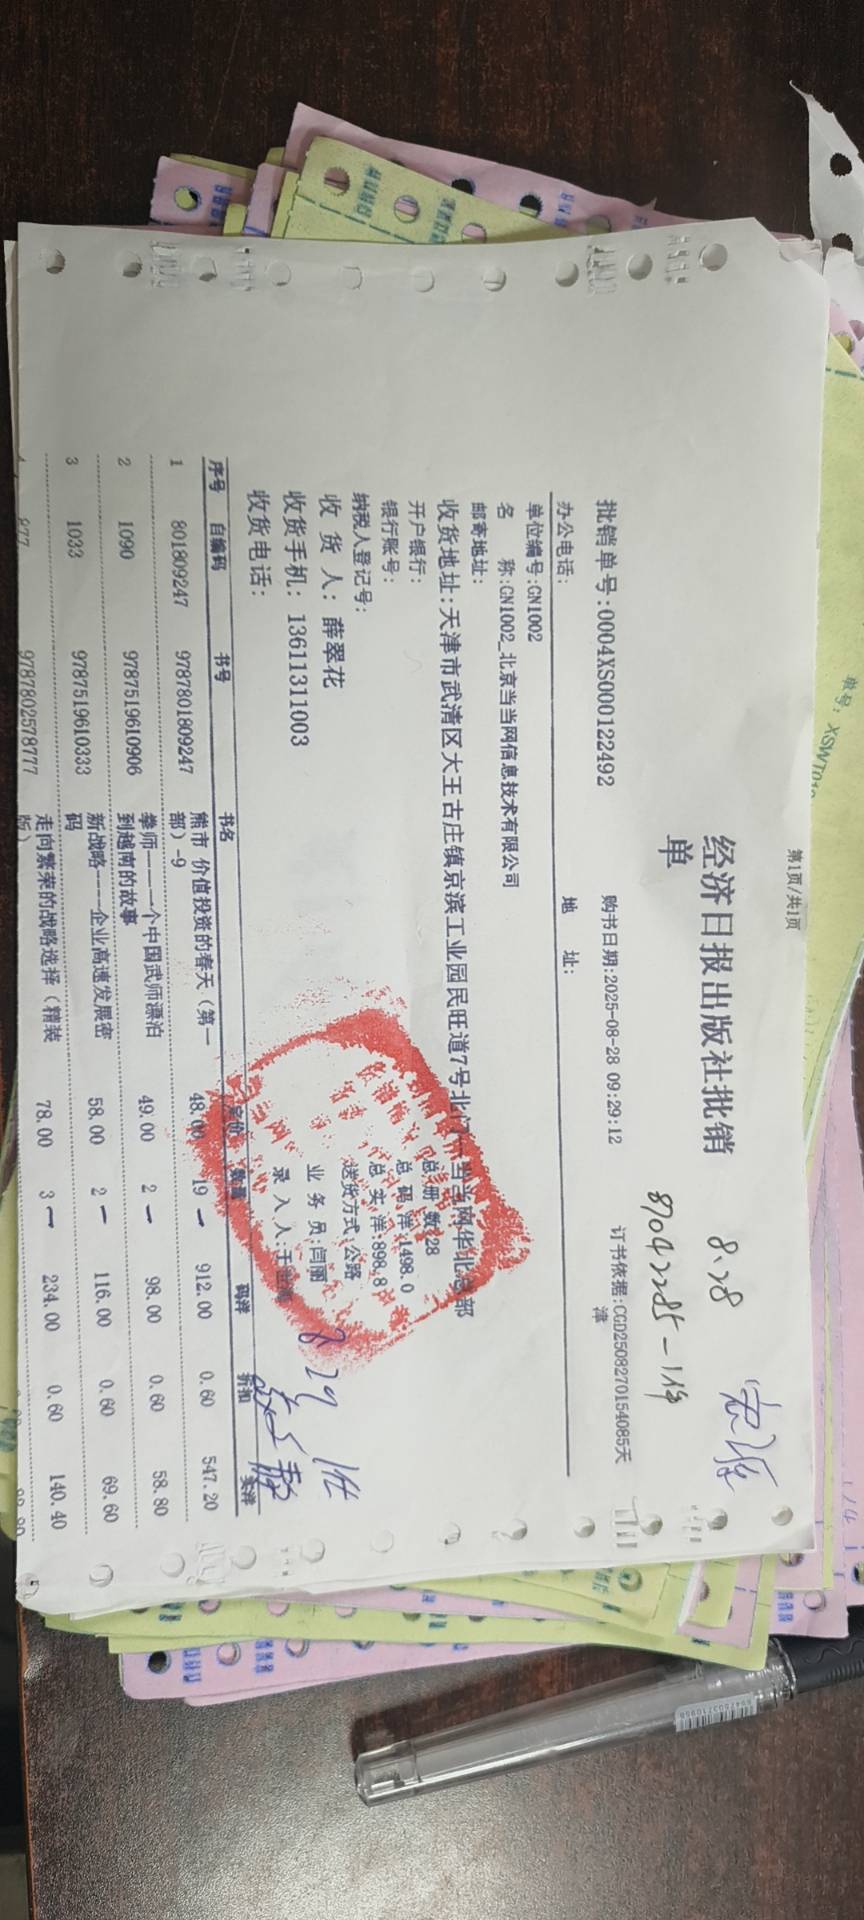 第1页/共1页
经济日报出版社批销
单
8.28
87042285-1件
批销单号:0004XS000122492 购书日期:2025-08-28 09:29:12 订书依据:CGD2508270154085天
津
办公电话: 地 址:
单位编号:GN1002
名 称:GN1002_北京当当网信息技术有限公司
邮寄地址:
收货地址:天津市武清区大王古庄镇京滨工业园民旺道7号北门 当当网华北总部
开户银行: 总册 数:28
银行账号: 总 码 洋:1498.0
纳税人登记号: 总 实 洋:898.8
收 货 人: 薛翠花 送货方式:公路
收货手机: 13611311003 业 务 员:闫丽
收货电话: 录 入 人:
8 29
序号 自编码 书号 书名 定价 数量 码洋 折扣 实洋
1 801809247 9787801809247 熊市 价值投资的春天（第一 48.00 19 912.00 0.60 547.20
部）-9
2 1090 9787519610906 拳师——一个中国武师漂泊 49.00 2 98.00 0.60 58.80
到越南的故事
3 1033 9787519610333 新战略——企业高速发展密 58.00 2 116.00 0.60 69.60
码
877 9787802578777 走向繁荣的战略选择（精装 78.00 3 234.00 0.60 140.40
版）